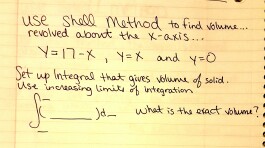 use shell Method to find volume...
revolved about the x-axis...
Y=17-x , Y=x and y=0
Set up Integral that gives volume of solid.
Use increasing limits of integration
∫( ___ )d_ what is the exact volume?